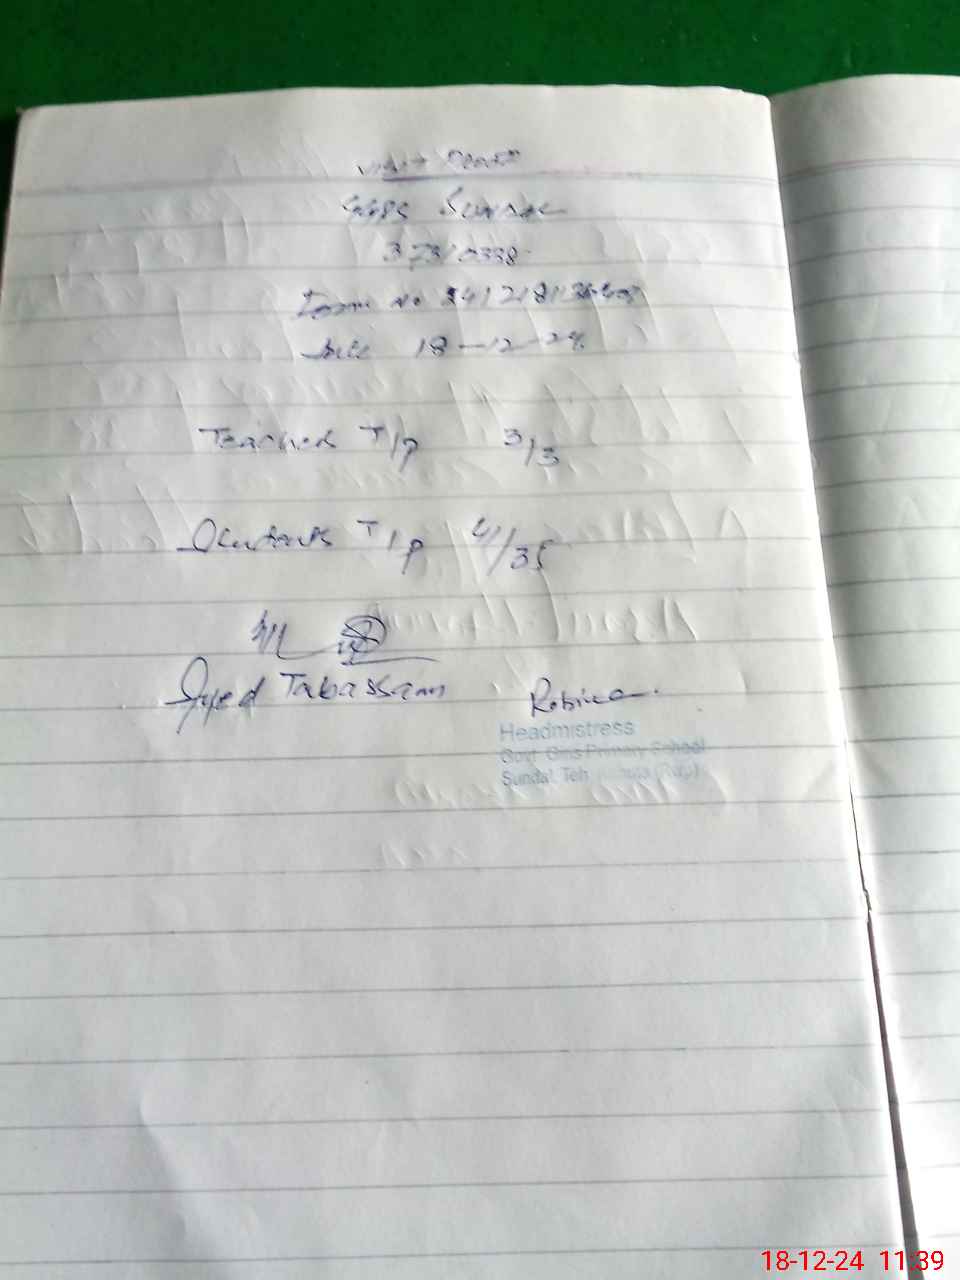 Visit Report
GGPS Sundal
37310338
No
Date 18-12-24
Teacher T/P 3/3
Students T/P 41/35
Syed Tabassam
Robina
Headmistress
Govt Girls Primary School
Sundal Teh (Rwp)
18-12-24 11:39